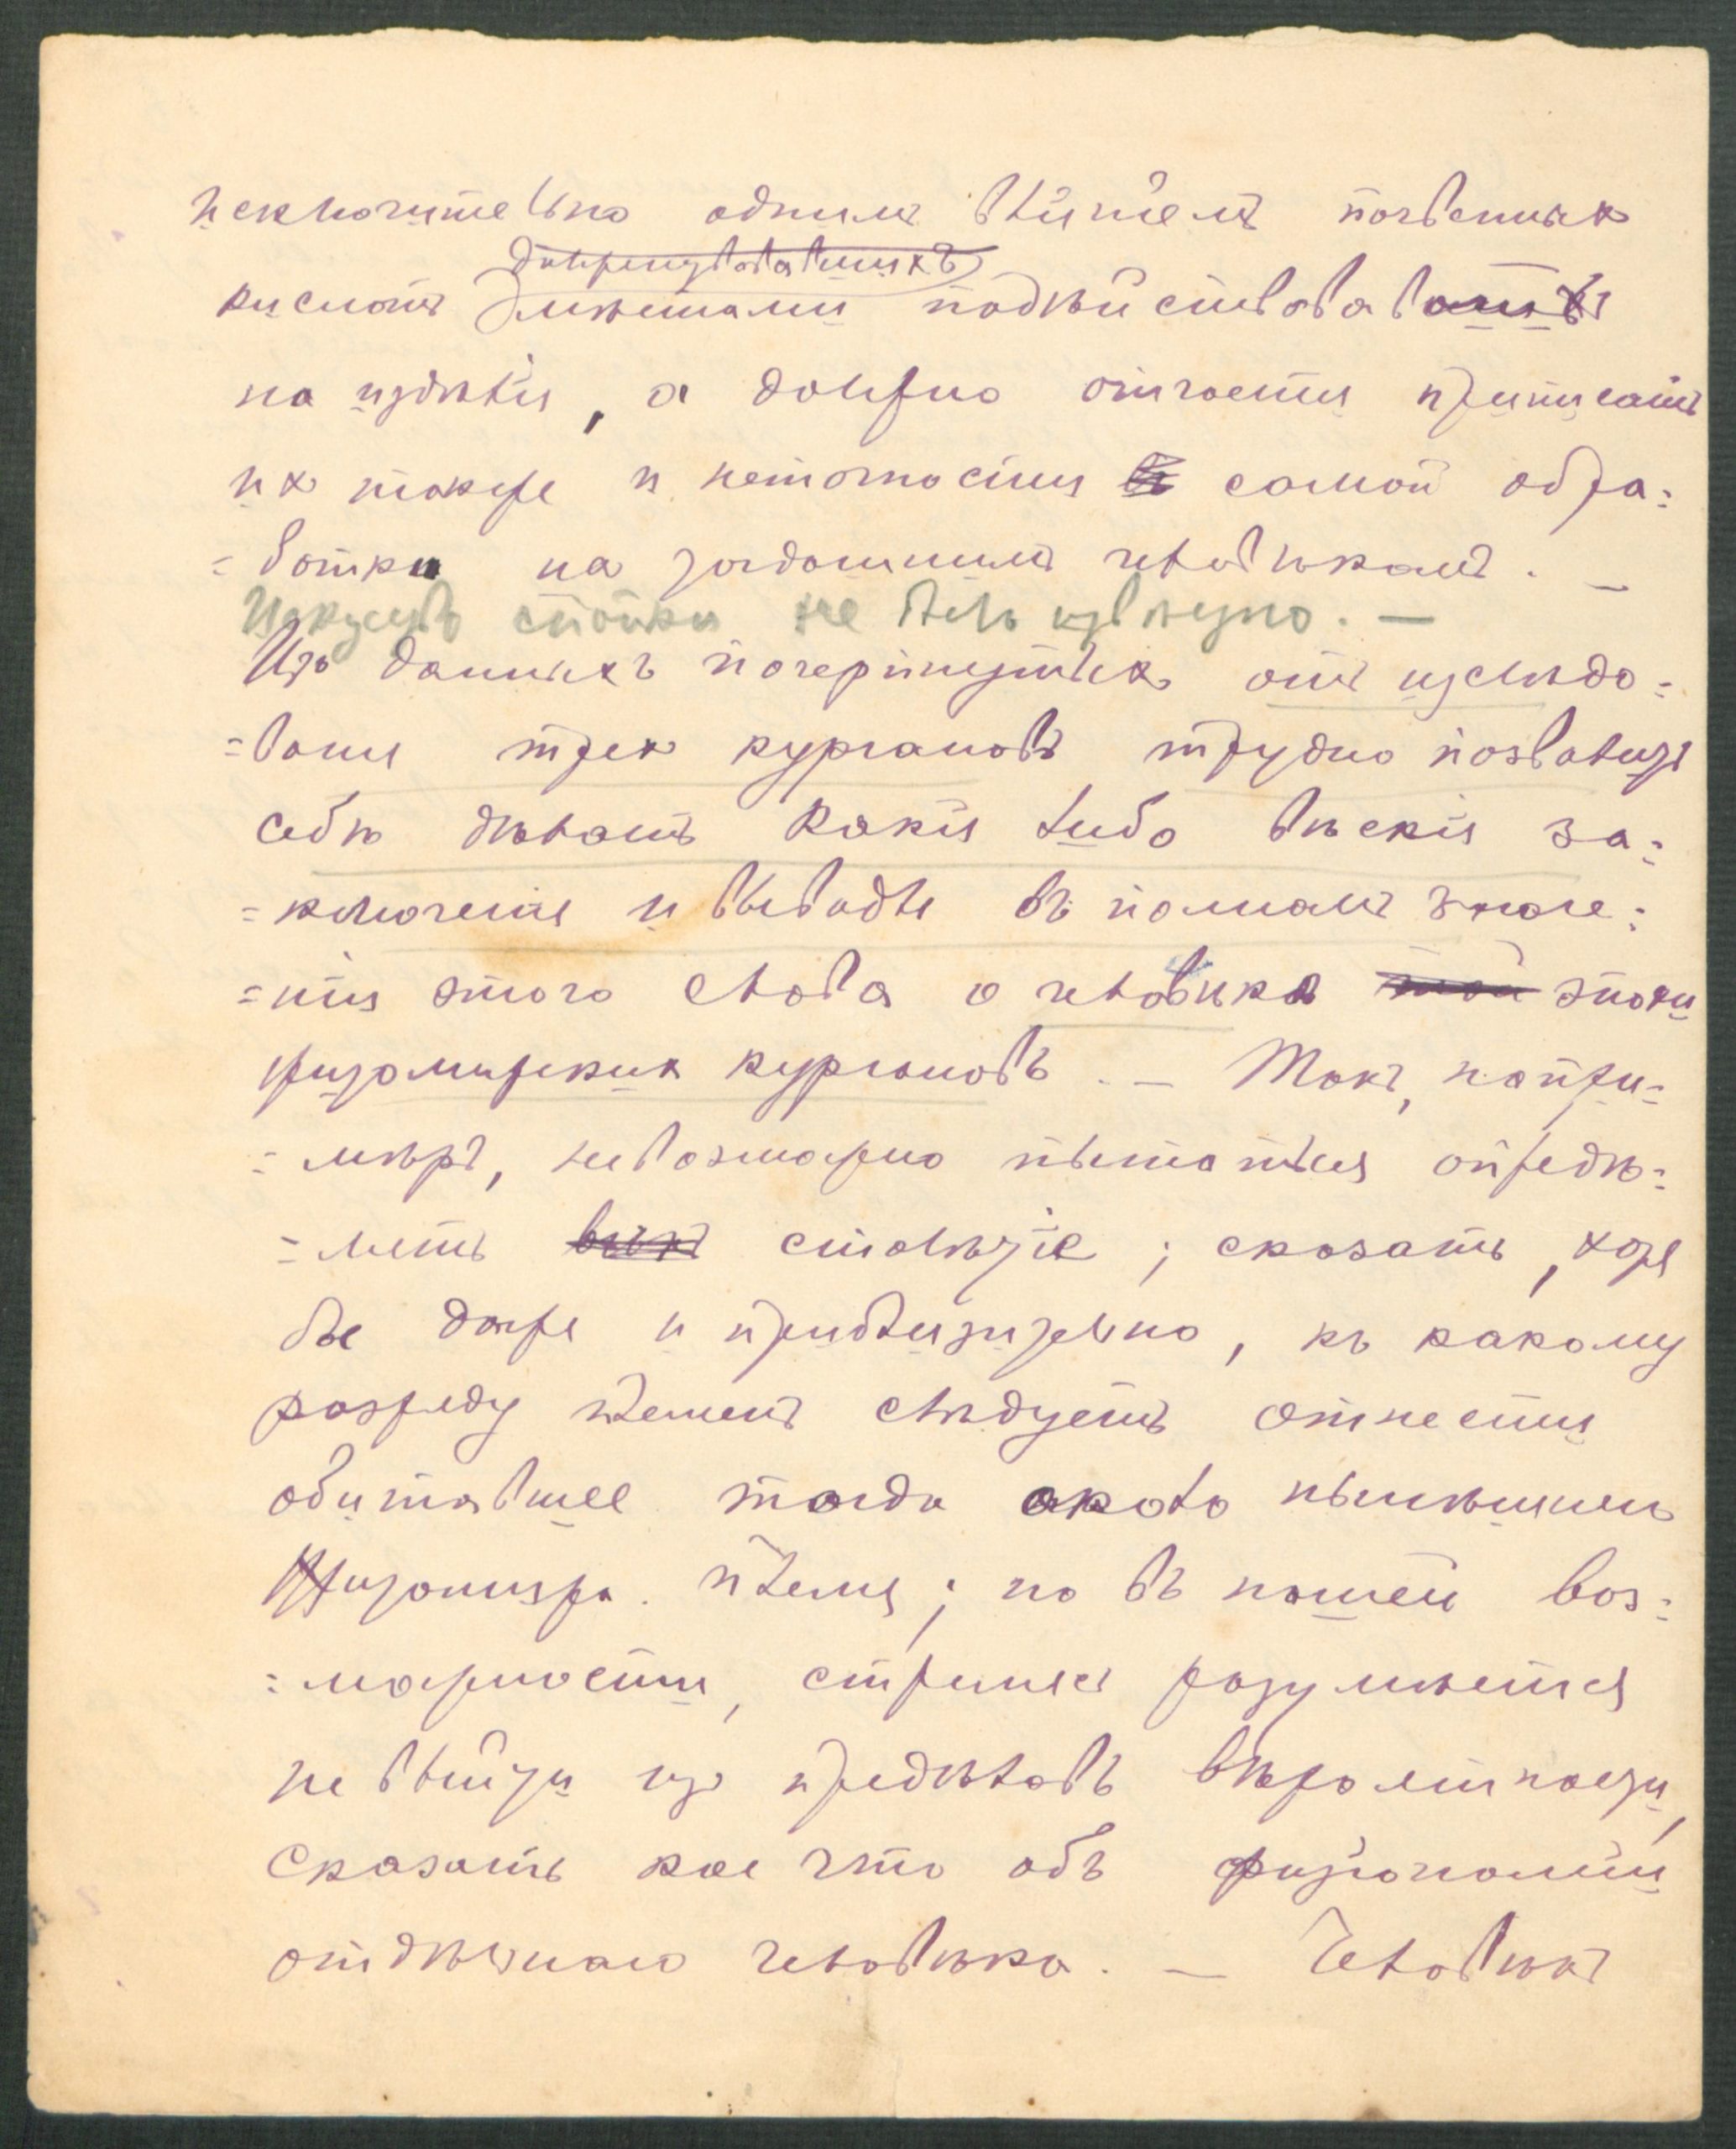 исключительно однимъ вліяніемъ почвенныхъ
дифренцовавшихъ
кислотъ мѣстами подѣйствовавшихъ
на издѣлія, а должно отчасти приписать
ихъ также и неточности въ самой обра=
=ботки на тогдашнимъ человѣкамъ. —
Искусство спайки не было извѣстно. —
Изъ данныхъ почерпнутыхъ отъ изслѣдо=
=ванія трехъ кургановъ трудно позволить
себѣ дѣлать какія либо вѣскія за=
=ключенія и выводы въ полномъ значе=
=нія этого слова о человѣкѣ той эпохи
жизомирскихъ кургановъ. — Такъ, напри=
=мѣръ, невозможно пытаться опредѣ=
=лять вѣкъ столѣтіе; сказать, хотя
бы даже и приблизительно, къ какому
разряду племенъ слѣдуетъ отнести
обитавшее тогда около нынѣшняго
Жизомира племя; но въ нашей воз=
=можности, стремясь разумѣется
не выйти изъ предѣловъ вѣроятности,
сказать кое что объ физіономіи
отдѣльнаго человѣка. — Человѣкъ